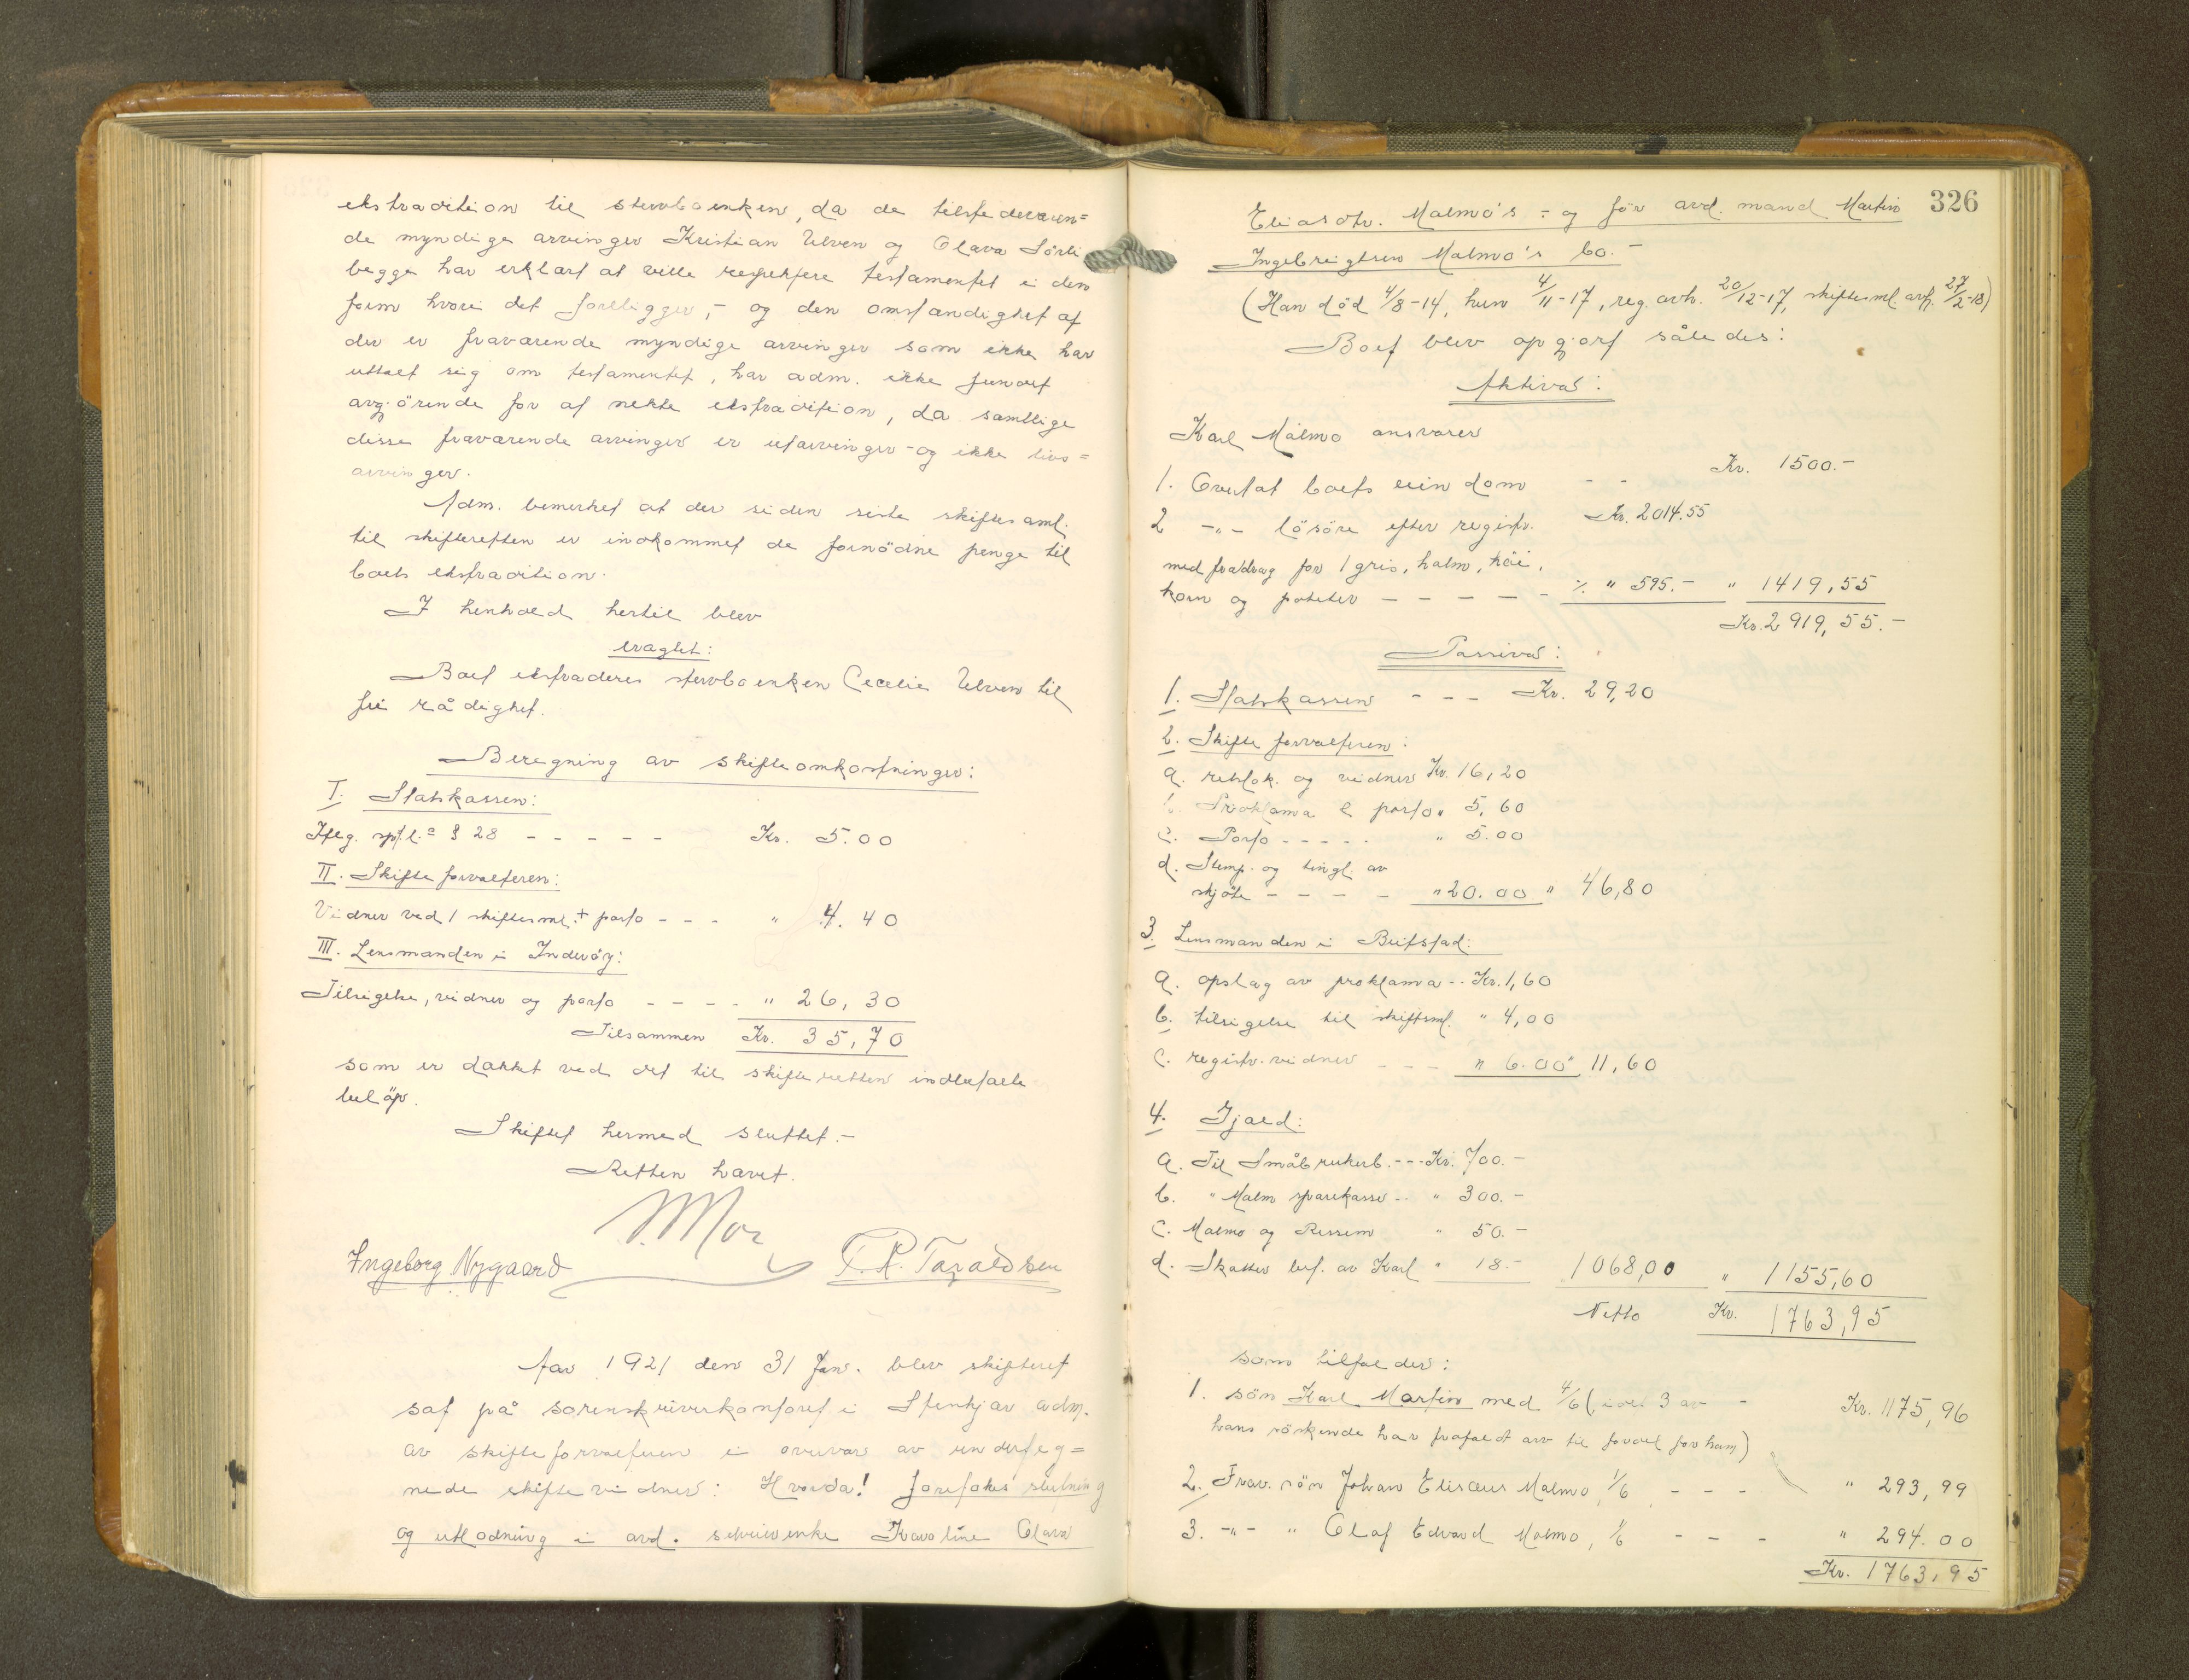 ekstradition til stervboenken, da de tilstedeværen=
de myndige arvinger Kristian Ulven og Olava Sörli
begge har erklært at ville respektere testamentet i den
form hvori det foreligger, - og den omstændighet at
der er fraværende myndige arvinger som ikke har
uttalt sig om testamentet, har adm. ikke fundet
avgjörende for at nekte ekstradition, da samtlige
disse fraværende arvinger er utarvinger - og ikke livs=
arvinger.
Adm. bemerket at der siden siste skiftesaml.
til skifteretten er indkommet de fornödne penge til
boets ekstradition.
I henhold hertil blev
eragtet:
Boet ekstraderes stervboenken Cecelie Ulven til
fri rådighet.
Beregning av skifteomkostninger:
I. Statskassen:
Iflg. sptl. § 28 - - - - - Kr. 5.00
II. Skifteforvalteren:
Vidner ved 1 skiftesml. + porto - - - " 4.40
III. Lensmanden i Inderöy:
Tilsigelse, vidner og porto - - - - " 26,30
Tilsammen Kr. 35,70
som er dækket ved det til skifteretten indbetalte
belöp.
Skiftet hermed sluttet.-
Retten hævet.
Mor
Ingeborg Nygaard T. R. Taraldsen
Aar 1921 den 31 Jan. blev skifteret
sat på sorenskriverkontoret i Stenkjær adm.
av skifteforvalteren i overvær av underteg=
nede skiftevidner: Hvorda! foretokes slutning
og utlodning i avd. selveierenke Karoline Olava
326
Eliasdtr. Malmo's - og för avd. mand Martin
Ingebrigtsen Malmo's bo.-
(Han död 4/8-14, hun 4/11-17, reg. avh. 20/12-17, skiftesml. avh. 27/2-18)
Boet blev opgjort således:
Aktiva:
Karl Malmo ansvarer
1. Overtat boets eiendom - - Kr. 1500.-
2 -"- lösöre efter registr. Kr. 2014.55
med fradrag for 1 gris, halm, höi,
korn og poteter - - - - - ./. " 595.- " 1419,55
Kr. 2919,55.-
Passiva:
1. Statskassen - - - Kr. 29,20
2. Skifteforvalteren:
a. retslok. og vidner Kr. 16,20
b. Proklama & porto " 5,60
c. Porto - - - - - " 5.00
d. Stemp. og tingl. av
skjöte - - - - " 20.00 " 46,80
3. Lensmanden i Beitstad:
a. opslag av proklama - - Kr. 1,60
b. tilsigelse til skiftsml. " 4,00
c. registr. vidner - - - " 6.00 " 11,60
4. Gjæld:
a. Til Småbrukerb. - - - Kr. 700.-
b. " Malm sparekasse - - " 300.-
c. Malmo og Ressem " 50.-
d. Skatter bet. av Karl " 18.- 1068,00 " 1155,60
Netto Kr. 1763,95
som tilfalder:
1. sön Karl Martin med 4/6 (idet 3 av - Kr. 1175,96
hans söskende har frafaldt arv til fordel for ham)
2. Frav. sön Johan Elisæus Malmo, 1/6 - - - " 293,99
3. -"- " Olaf Edvard Malmo, 1/6 - - - " 294.00
Kr. 1763,95